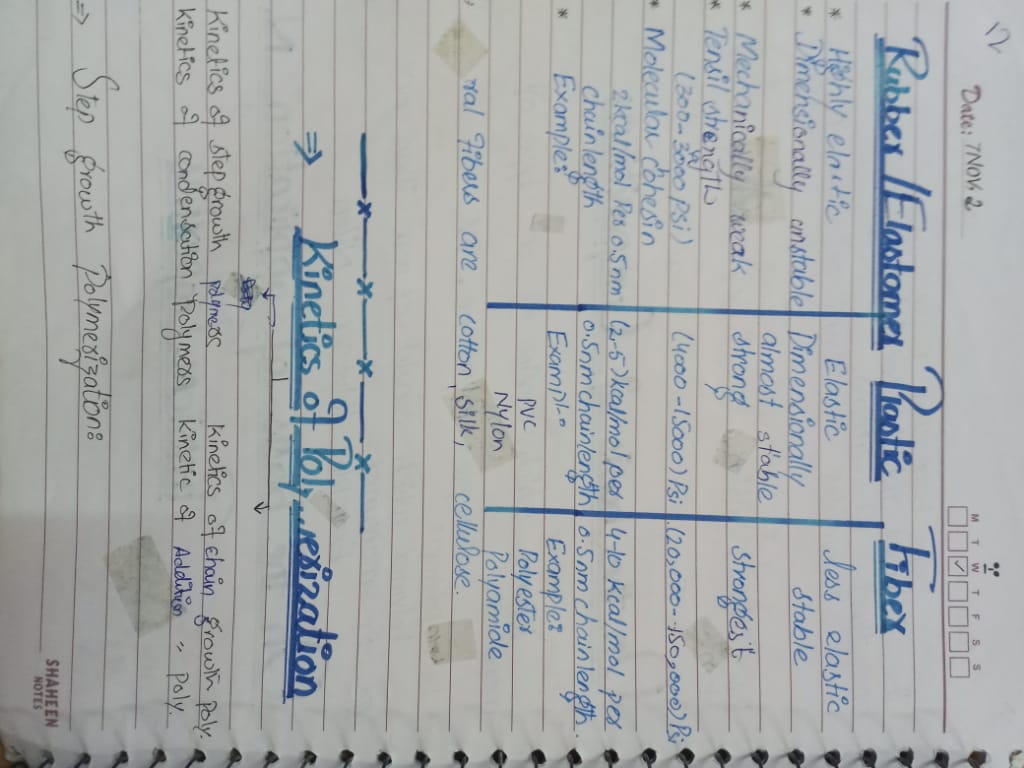 12
Date: 7Nov. 2
M T W T F S S
Rubber/Elastomer Plastic Fiber
* Highly elastic Elastic less elastic
* Dimensionally unstable Dimensionally stable
almost stable
* Mechanically weak strong strongest
* Tensil strength
(300-3000 psi) (4000-15000) Psi (20,000-150,000) Psi
* Molecular Cohesin
2kcal/mol Per 0.5nm (2-5)kcal/mol per 4-10 kcal/mol per
chain length 0.5nm chain length 0.5nm chain length.
* Example: Example Example:
PVC Polyester
Nylon Polyamide
ral Fibers are cotton, silk, cellulose.
⇒ Kinetics of Polymerization
Kinetics of step growth polymers Kinetics of chain growth poly
Kinetics of condensation Polymers Kinetic of Addition " Poly.
⇒ Step growth Polymerization:
SHAHEEN
NOTES